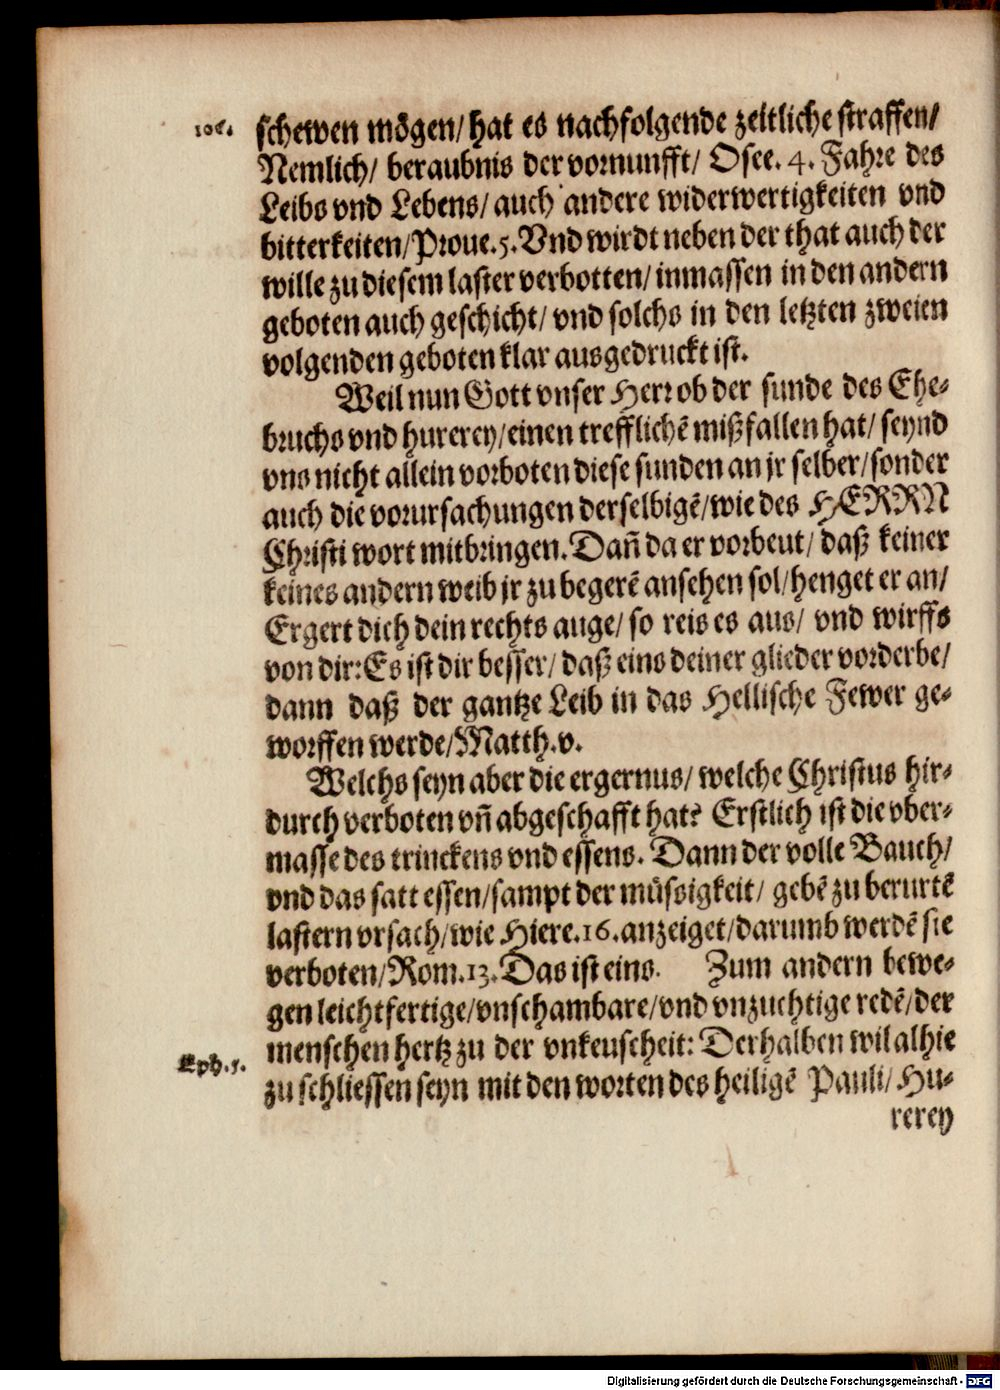 schewen mögen/ hat es nachfolgende zeitliche straffen/
Nemlich/ beraubnis der vornunfft/ Osee. 4. Fahre des
Leibs vnd Lebens/ auch andere widerwertigkeiten vnd
bitterkeiten/Proue.5. Vnd wirdt neben der that auch der
wille zu diesem laster verbotten/ inmassen in den andern
geboten auch geschicht/ vnd solchs in den letzten zweien
volgenden geboten klar ausgedruckt ist.
Weil nun Gott vnser Herr ob der sunde des Ehe-
bruchs vnd hurerey/einen trefflichẽ mißfallen hat/ seynd
vns nicht allein vorboten diese sunden an jr selber/sonder
auch die vorursachungen derselbigẽ/wie des HERRN
Christi wort mitbringen. Dañ da er vorbeut/ daß keiner
keines andern weib jr zu begerẽ ansehen sol/henget er an/
Ergert dich dein rechts auge/ so reis es aus/ vnd wirffs
von dir: Es ist dir besser/ daß eins deiner glieder vorderbe/
dann daß der gantze Leib in das Hellische Fewer ge-
worffen werde/Matth.v.
Welchs seyn aber die ergernus/ welche Christus hir-
durch verboten vñ abgeschafft hat? Erstlich ist die vber-
masse des trinckens vnd essens. Dann der volle Bauch/
vnd das satt essen/sampt der müssigkeit/ gebẽ zu berurtẽ
lastern vrsach/wie Hiere.16.anzeiget/darumb werdẽ sie
verboten/Rom.13. Das ist eins. Zum andern bewe-
gen leichtfertige/vnschambare/vnd vnzuchtige redẽ/der
menschen hertz zu der vnkeuscheit: Derhalben wil alhie
Eph.5.
zu schliessen seyn mit den worten des heiligẽ Pauli/ Hu-
rerey
Digitalisierung gefördert durch die Deutsche Forschungsgemeinschaft - DFG